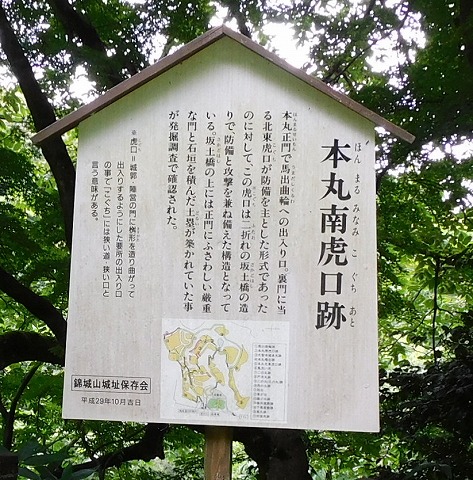 本丸南虎口跡
ほん まる みなみ こ ぐち あと
本丸正門で馬出曲輪への出入り口。裏門に当
る北東虎口が防備を主とした形式であった
のに対して、この虎口は二折れの坂土橋の造
りで、防備と攻撃を兼ね備えた構造となって
いる。坂土橋の上には正門にふさわしい厳重
な門と石垣を積んだ土塁が築かれていた事
が発掘調査で確認された。
※虎口＝城郭、陣営の門に桝形を造り曲がって
出入りするようにした要所の出入り口
の事で「こぐち」とは狭い道、狭い口と
言う意味がある。
錦城山城址保存会
平成29年10月吉日